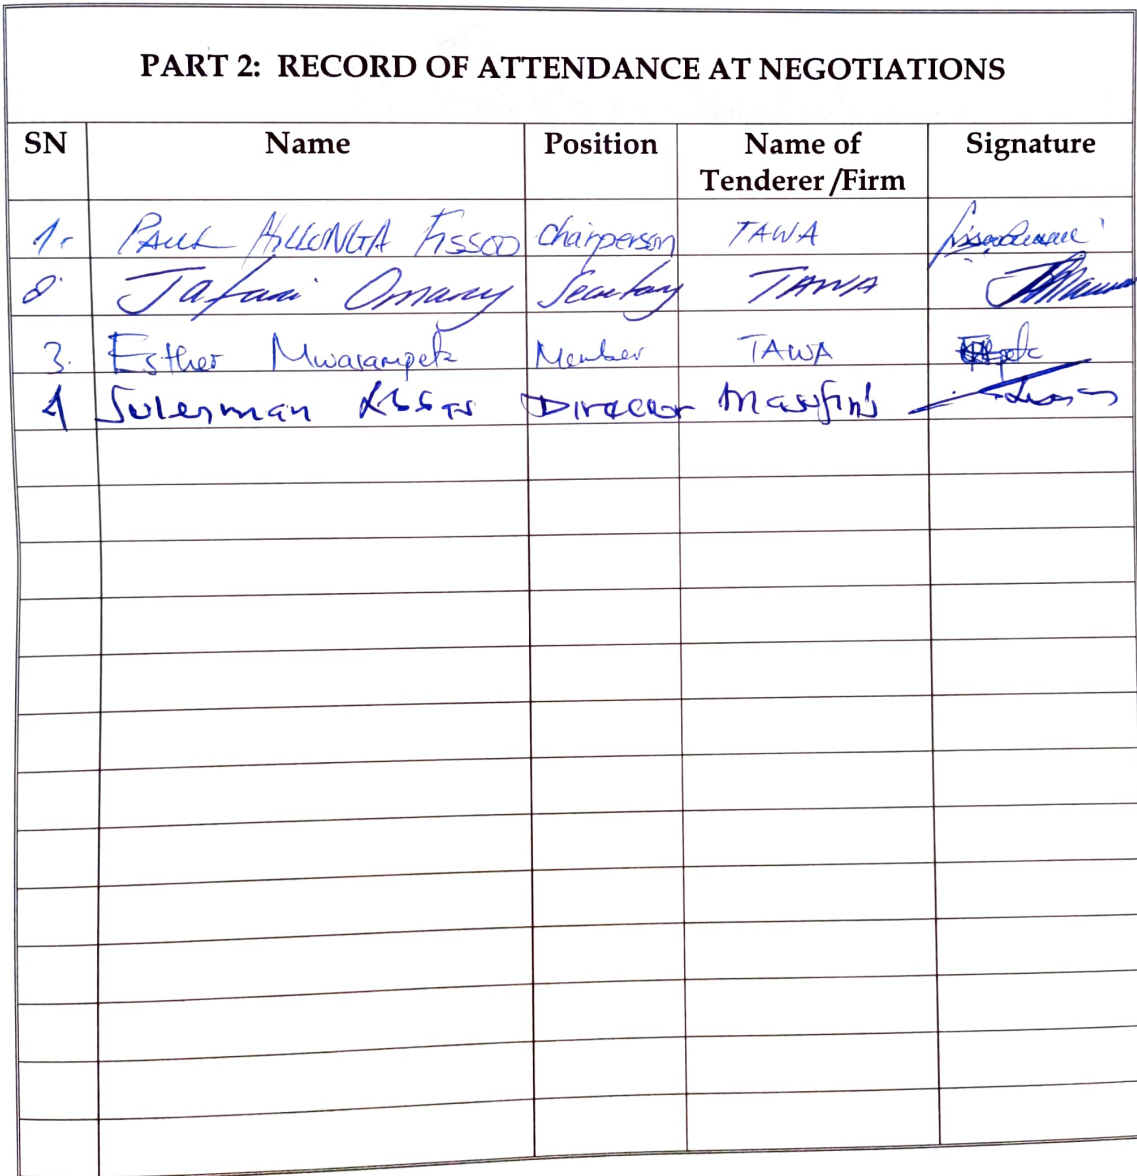 PART 2: RECORD OF ATTENDANCE AT NEGOTIATIONS
SN Name Position Name of Tenderer/Firm Signature
1. PAUL Fissoo Chairperson TAWA
Jafari Omary Secretary TAWA
3. Esther Member TAWA
4 Suleiman Director